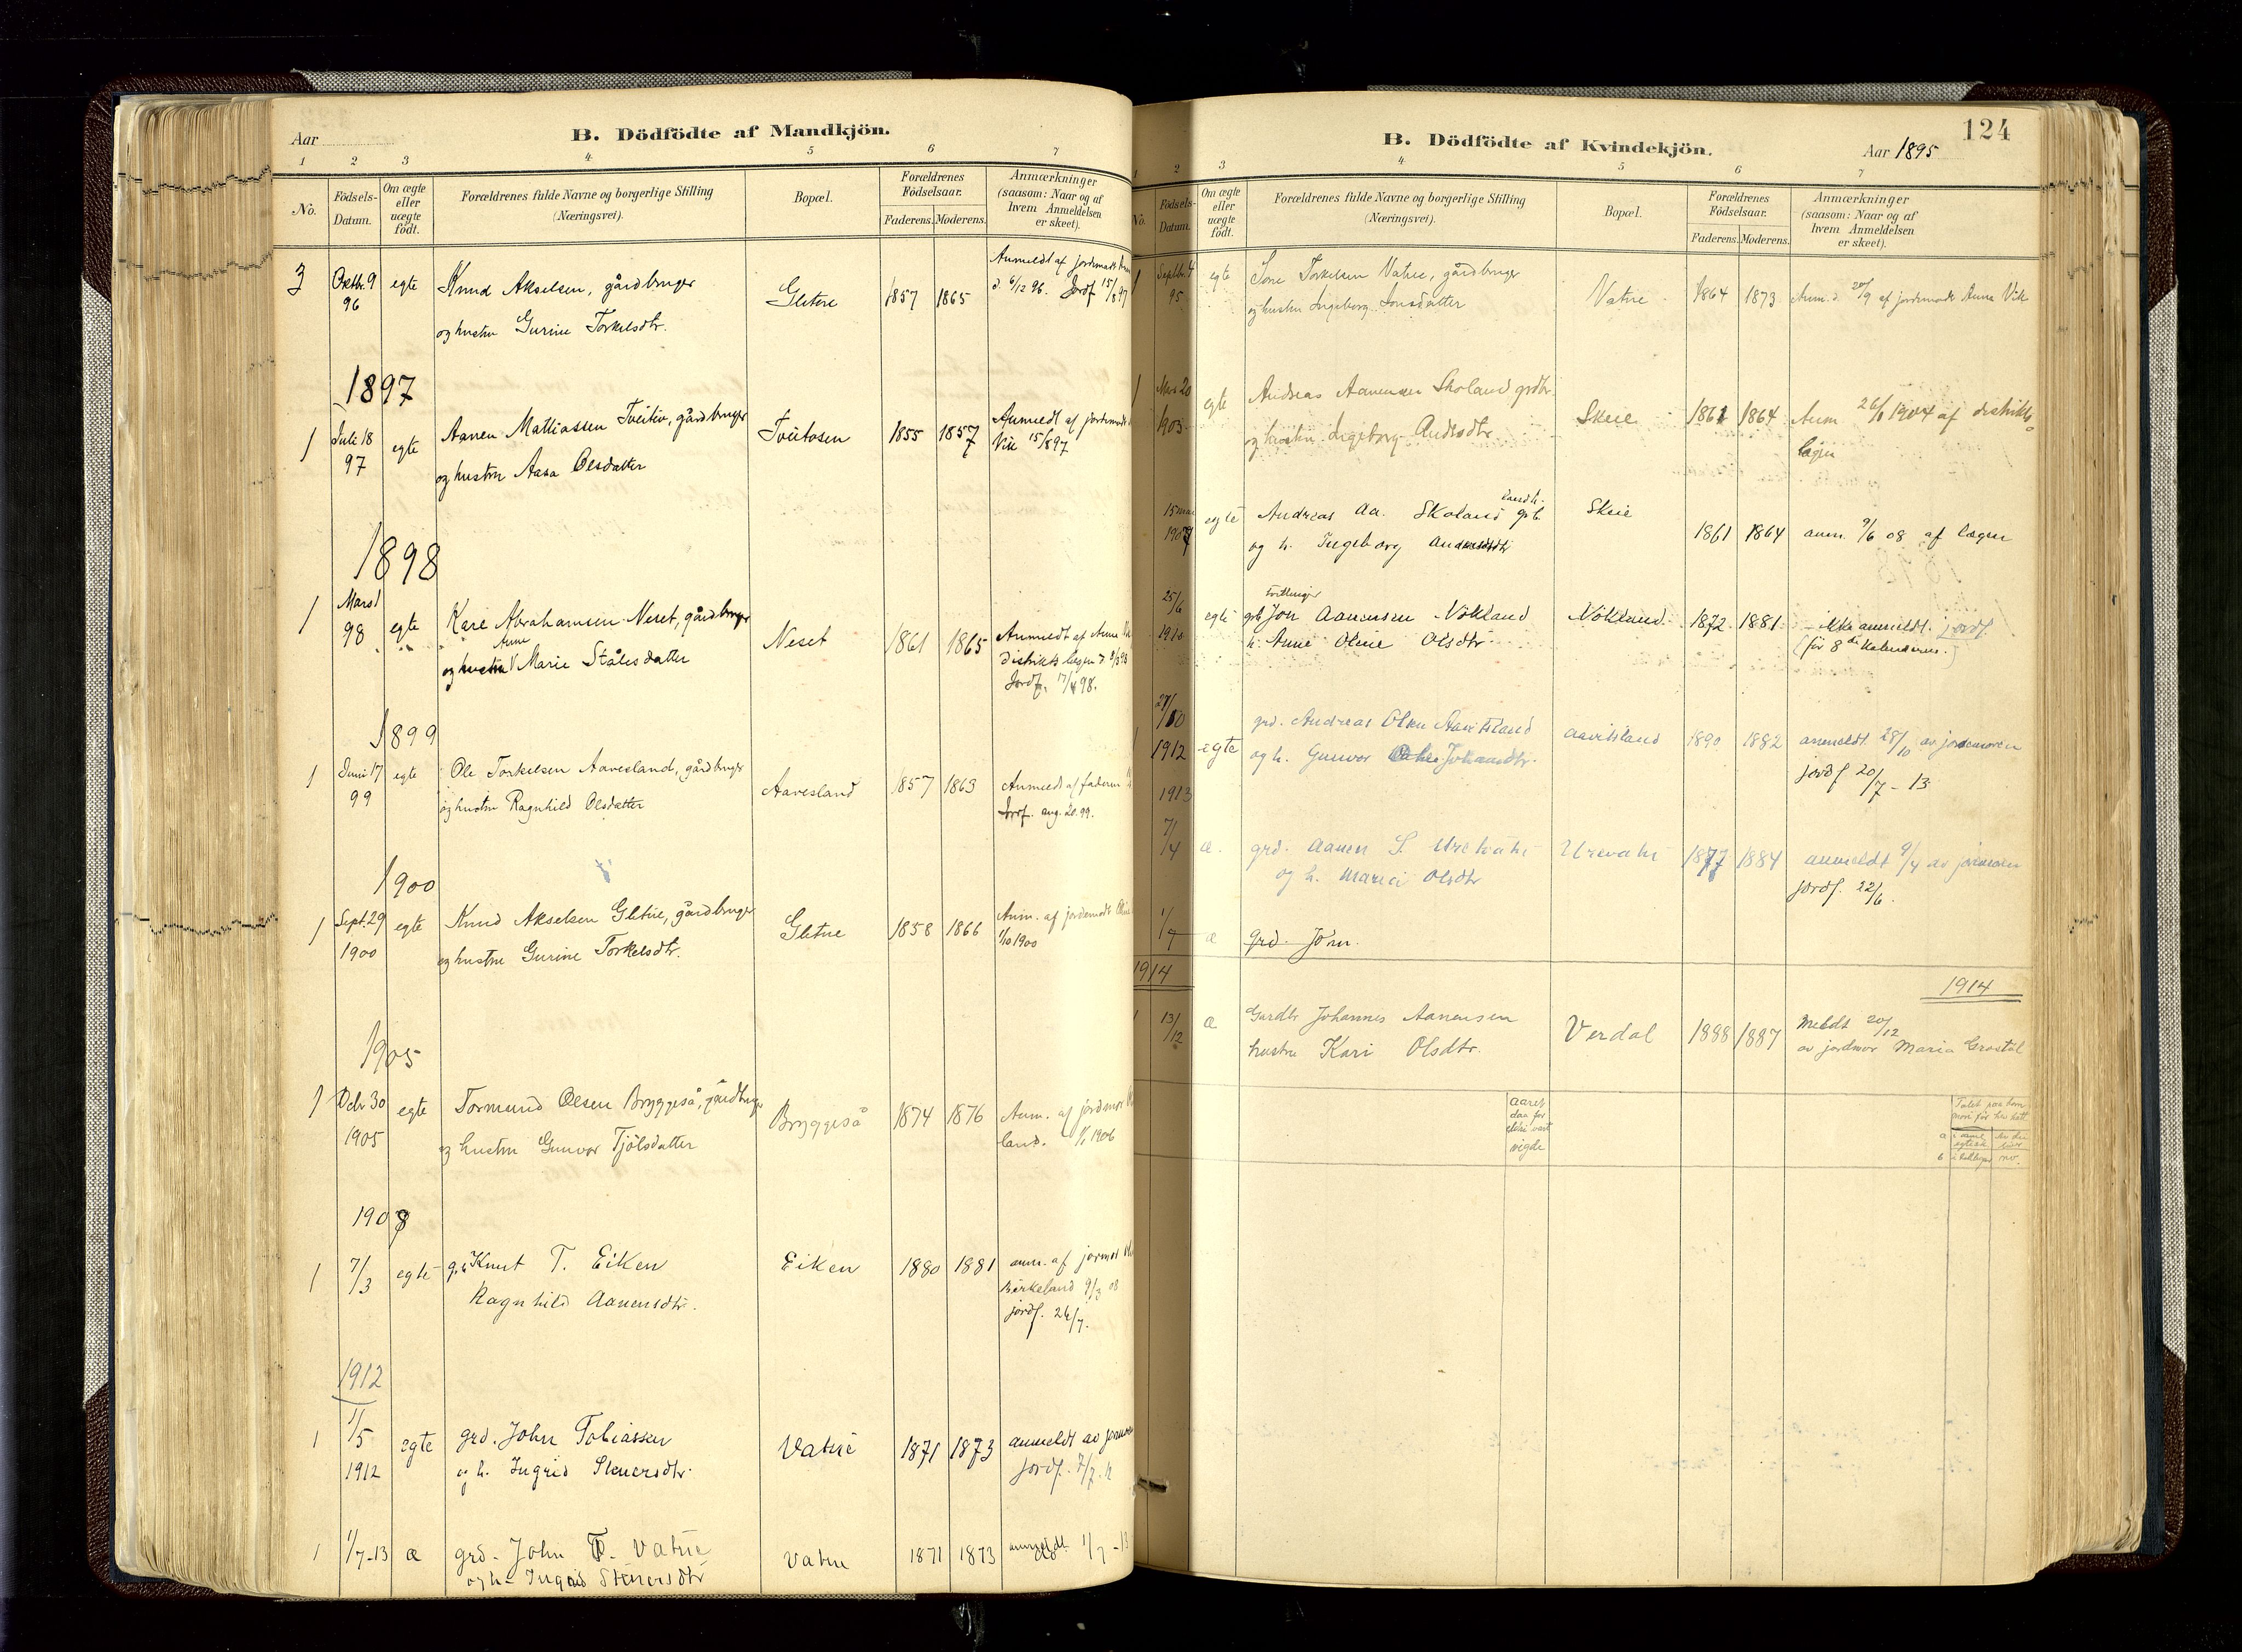 Aar
B. Dödfödte af Mandkjön.
1 2 3 4 5 6 7
No.
Födsels-
Datum.
Om ægte
eller
uægte
födt.
Forældrenes fulde Navne og borgerlige Stilling
(Næringsvei).
Bopæl.
Forældrenes
Födselsaar.
Faderens. Moderens.
Anmærkninger
(saasom: Naar og af
hvem Anmeldelsen
er skeet).
3 Octbr. 9 egte Knud Akselsen, gårdbruger Gletne 1857 1865 Anmeldt af jordemodr
96 og hustru Gurine Torkelsdtr. d. 6/12 96. Jordf 15/8 97
1897
1 Juli 18 egte Aanen Mathiassen Tveiten, gårdbruger Tveitosen 1855 1857 Anmeldt af jordemodr
97 og hustru Aasa Olsdatter Vik 15/8 97
1898
1 Mars 1
98 egte Kare Abrahamsen Neset, gårdbruger Neset 1861 1865 Anmeldt af Anna
Anne
og hustru Marie Stålesdatter distriktslægen
Jordf. 17/4 98.
1899
1 Juni 17 egte Ole Torkelsen Aavesland, gårdbruger Aavesland 1857 1863 Anmeldt af faderen
99 og hustru Ragnhild Olsdatter Jordf. aug. 20. 99.
1900
1 Sept. 29 egte Knud Akselsen Gletne, gårdbruger Gletne 1858 1866 Anm. af jordemodr
1900 og hustru Gurine Torkelsdtr. 1/10 1900
1905
1 Dcbr 30 egte Tormund Olsen Bryggeså, gårdbruger Bryggeså 1874 1876 Anm. af jordmor
1905 og hustru Gunvor Tjölsdatter land. 1/1 1906
1908
1 7/3 egte g.b. Knut T. Eiken Eiken 1880 1881 anm. af jormor
Ragnhild Aanensdtr. Birkeland 9/3 08
jordf. 26/7.
1912
1 1/5 egte grd. John Tobiassen Vatne 1871 1873 anmeldt av jormor
1912 og h. Ingrid Steuersdtr. jordf. 7/7.
1 1/7-13 æ grd. John T. Vatne Vatne 1871 1873 anmeldt 1/7-13
og h. Ingrid Steuersdtr
124
B. Dödfödte af Kvindekjön.
Aar 1895
1 2 3 4 5 6 7
No.
Födsels-
Datum.
Om ægte
eller
uægte
födt.
Forældrenes fulde Navne og borgerlige Stilling
(Næringsvei).
Bopæl.
Forældrenes
Födselsaar.
Faderens. Moderens.
Anmærkninger
(saasom: Naar og af
hvem Anmeldelsen
er skeet).
1 Septbr. 4 egte Tore Torkelsen Vatne, gårdbruger Vatne 1864 1873 Anm. d. 20/9 af jordemodr Anna Vik
95 og hustru Ingeborg Jonsdatter
1 Mars 20 egte Andreas Aanensen Skoland grdbr Skeie 1861 1864 Anm 26/1 1904 af distrikts
1903 og hustru Ingeborg Andrsdtr. lægen
15 mai egte Andreas Aa. Skoland gb. Skeie
1907 og h. Ingeborg Andersdtr 1861 1864 anm. 9/6 08 af lægen
25/6 tvillinger
1910 egte grb Jon Aanensen Nökland Nökland 1872 1881 ikke anmeldt. jordf.
h. Anne Oline Olsdtr. (för 8de kalenderm.)
27/10 grd. Andreas Olsen Aavitsland Aavitsland 1890 1882 anmeldt 28/10 av jordmoren
1 1912 egte og h. Gunvor Johansdtr. jordf 20/7 - 13
1913
7/4 æ. grd. Aanen S. Urevatn Urevatn 1877 1884 anmeldt 9/4 av jormoren
og h. Maria Olsdtr jordf. 22/6.
1/7 æ grd. Jörn.
1914 1914
1 13/12 æ Gardbr Johannes Aanensen Verdal 1888 1887 Meldt 20/12
hustru Kari Olsdtr. av jordmor Maria Grostöl
Aaret
daa for
eldri vart
vigde